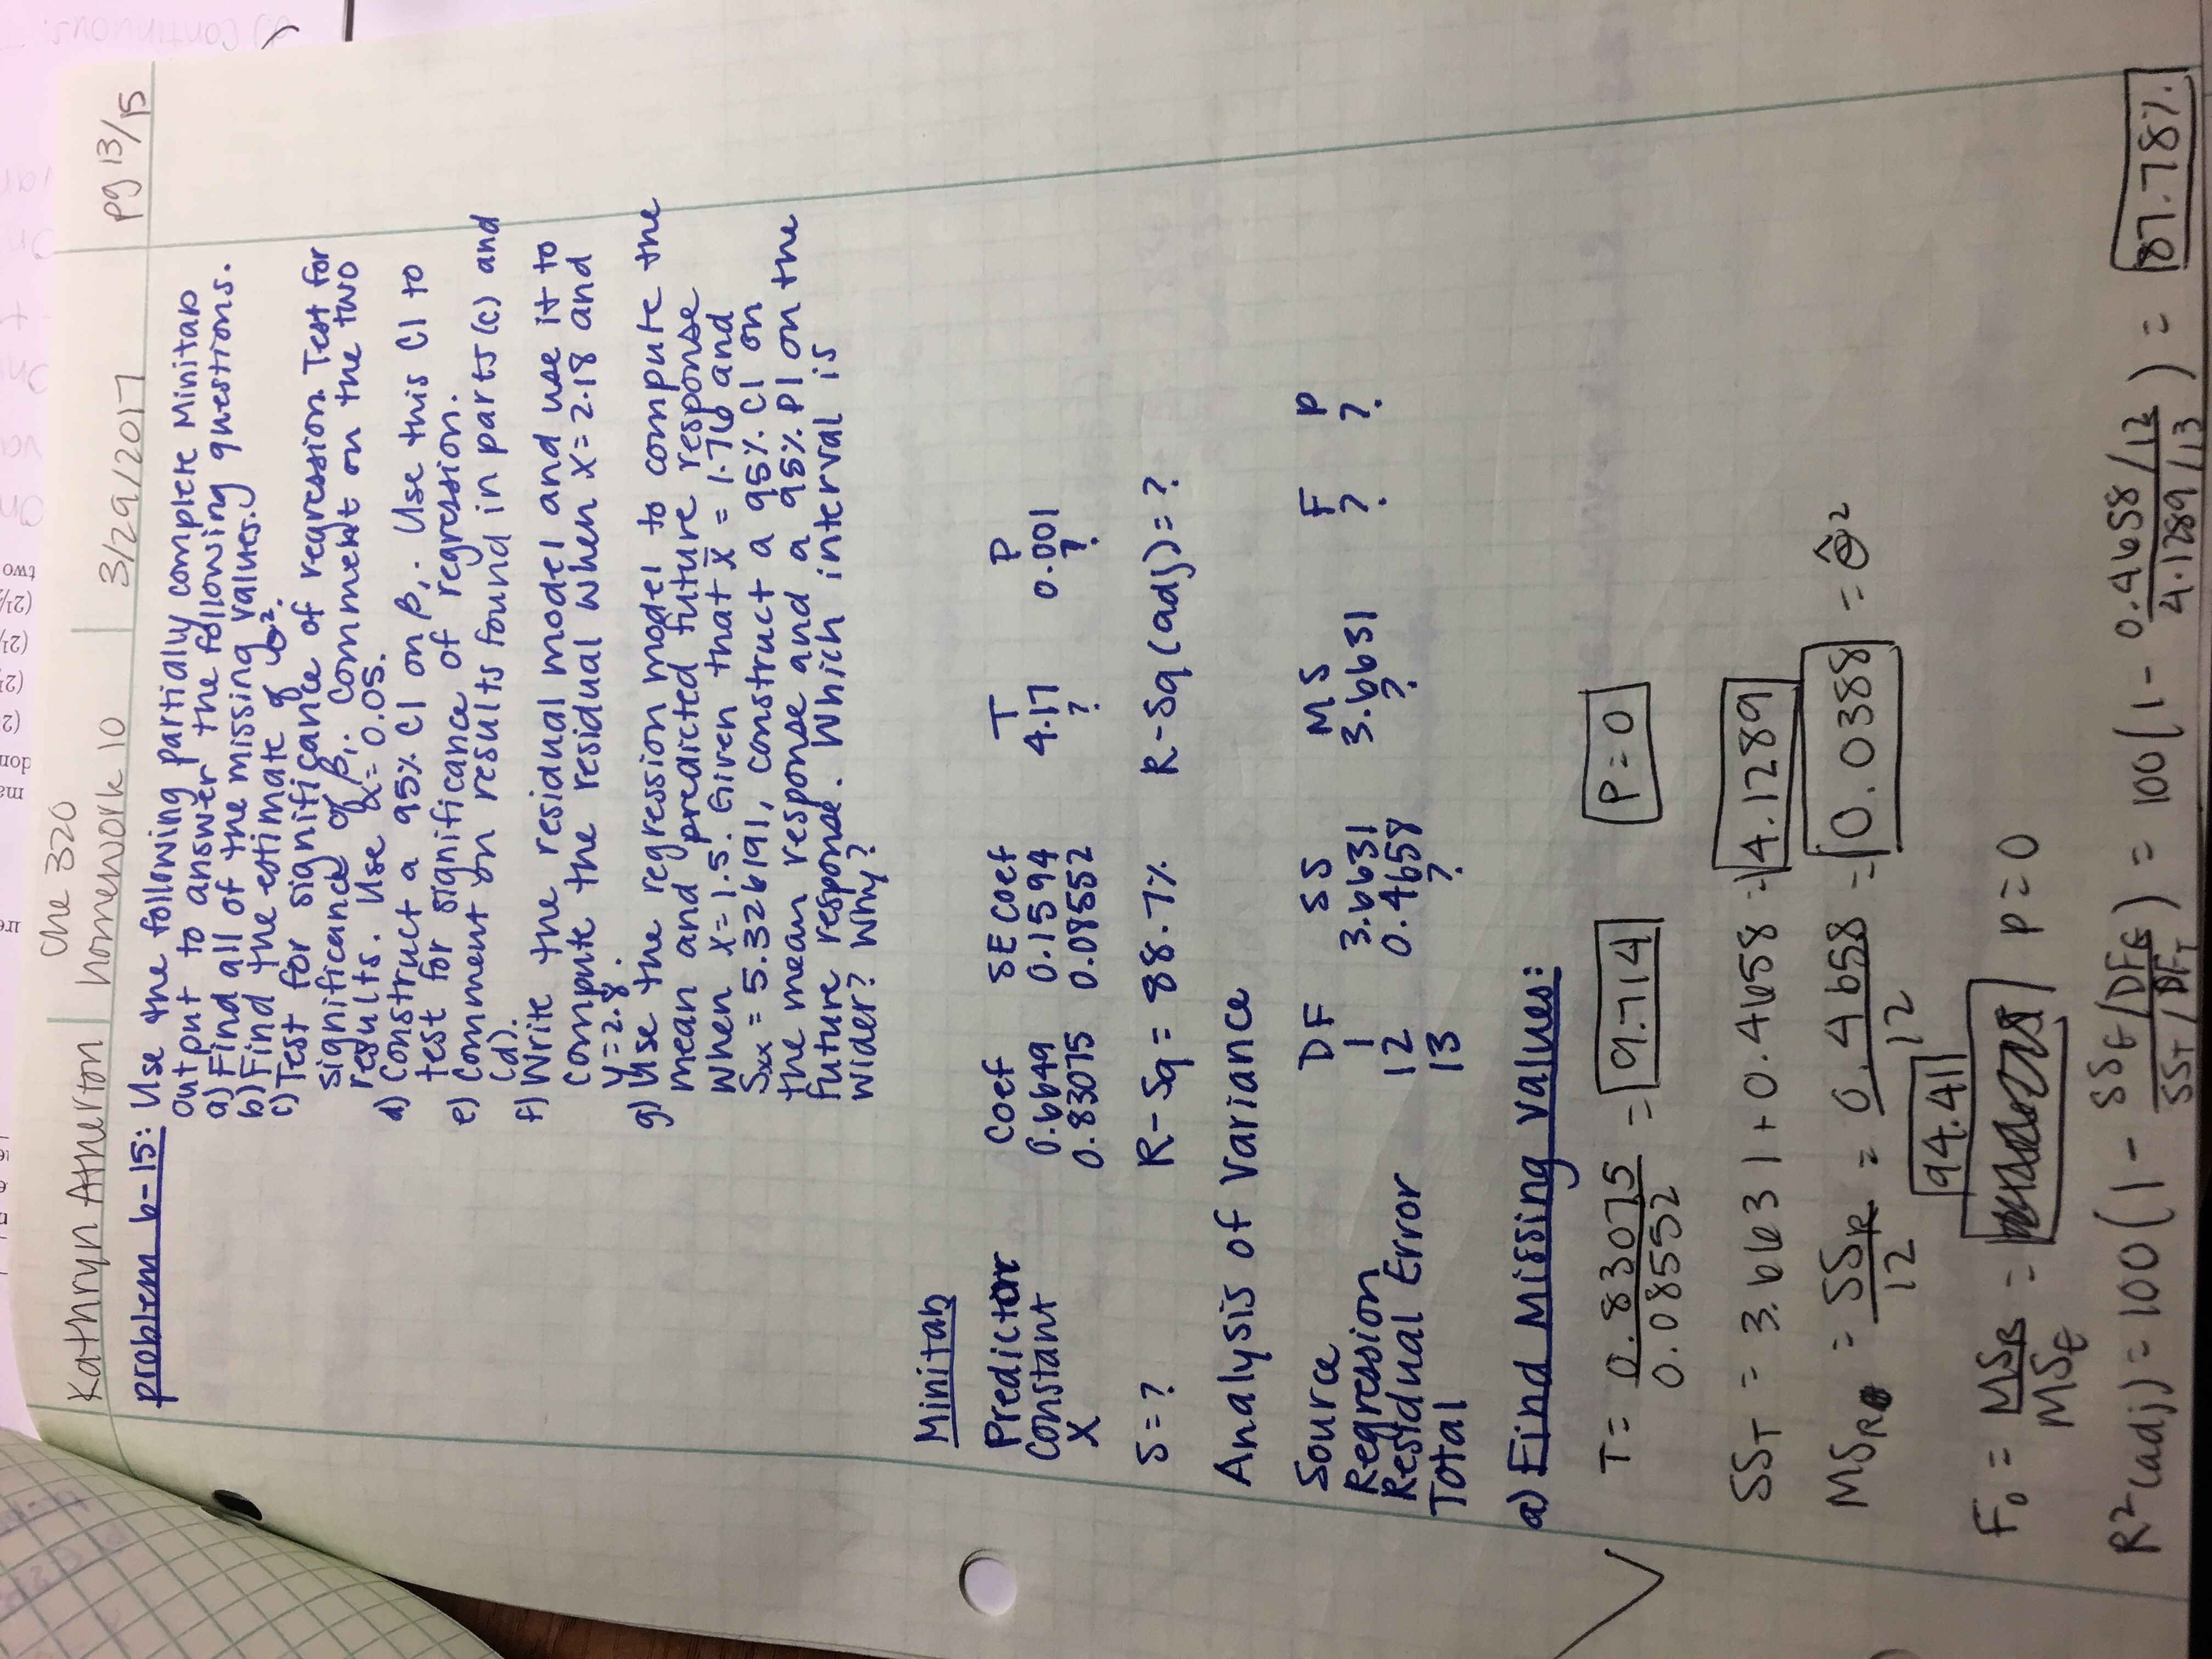 Kathryn Atherton
Che 320
homework 10
3/29/2017
pg 13/15
problem 6-15: Use the following partially complete Minitab
output to answer the following questions.
a) Find all of the missing values.
b) Find the estimate of σ².
c) Test for significance of regression. Test for
significance of β₁. Comment on the two
results. Use α = 0.05.
d) Construct a 95% CI on β₁. Use this CI to
test for significance of regression.
e) Comment on results found in parts (c) and
(d).
f) Write the residual model and use it to
compute the residual when x = 2.18 and
y = 2.8.
g) Use the regression model to compute the
mean and predicted future response
when x = 1.5. Given that x̄ = 1.76 and
Sxx = 5.326191, construct a 95% CI on
the mean response and a 95% PI on the
future response. Which interval is
wider? Why?
Minitab
Predictor Coef SE Coef T P
Constant 0.6649 0.1594 4.17 0.001
X 0.83075 0.08552 ? ?
S = ? R-Sq = 88.7% R-Sq (adj) = ?
Analysis of Variance
Source DF SS MS F P
Regression 1 3.6631 3.6631 ? ?
Residual Error 12 0.4658 ?
Total 13 ?
a) Find Missing Values:
T = 0.83075 / 0.08552 = 9.714 P = 0
SST = 3.6631 + 0.4658 = 4.1289
MSR = SSR / 12 = 0.4658 / 12 = 0.0388 = σ̂²
94.41
F₀ = MSR / MSE = p = 0
R²(adj) = 100 (1 - SSE/DFE / SST/DFT) = 100 (1 - 0.4658/12 / 4.1289/13) = 87.78%